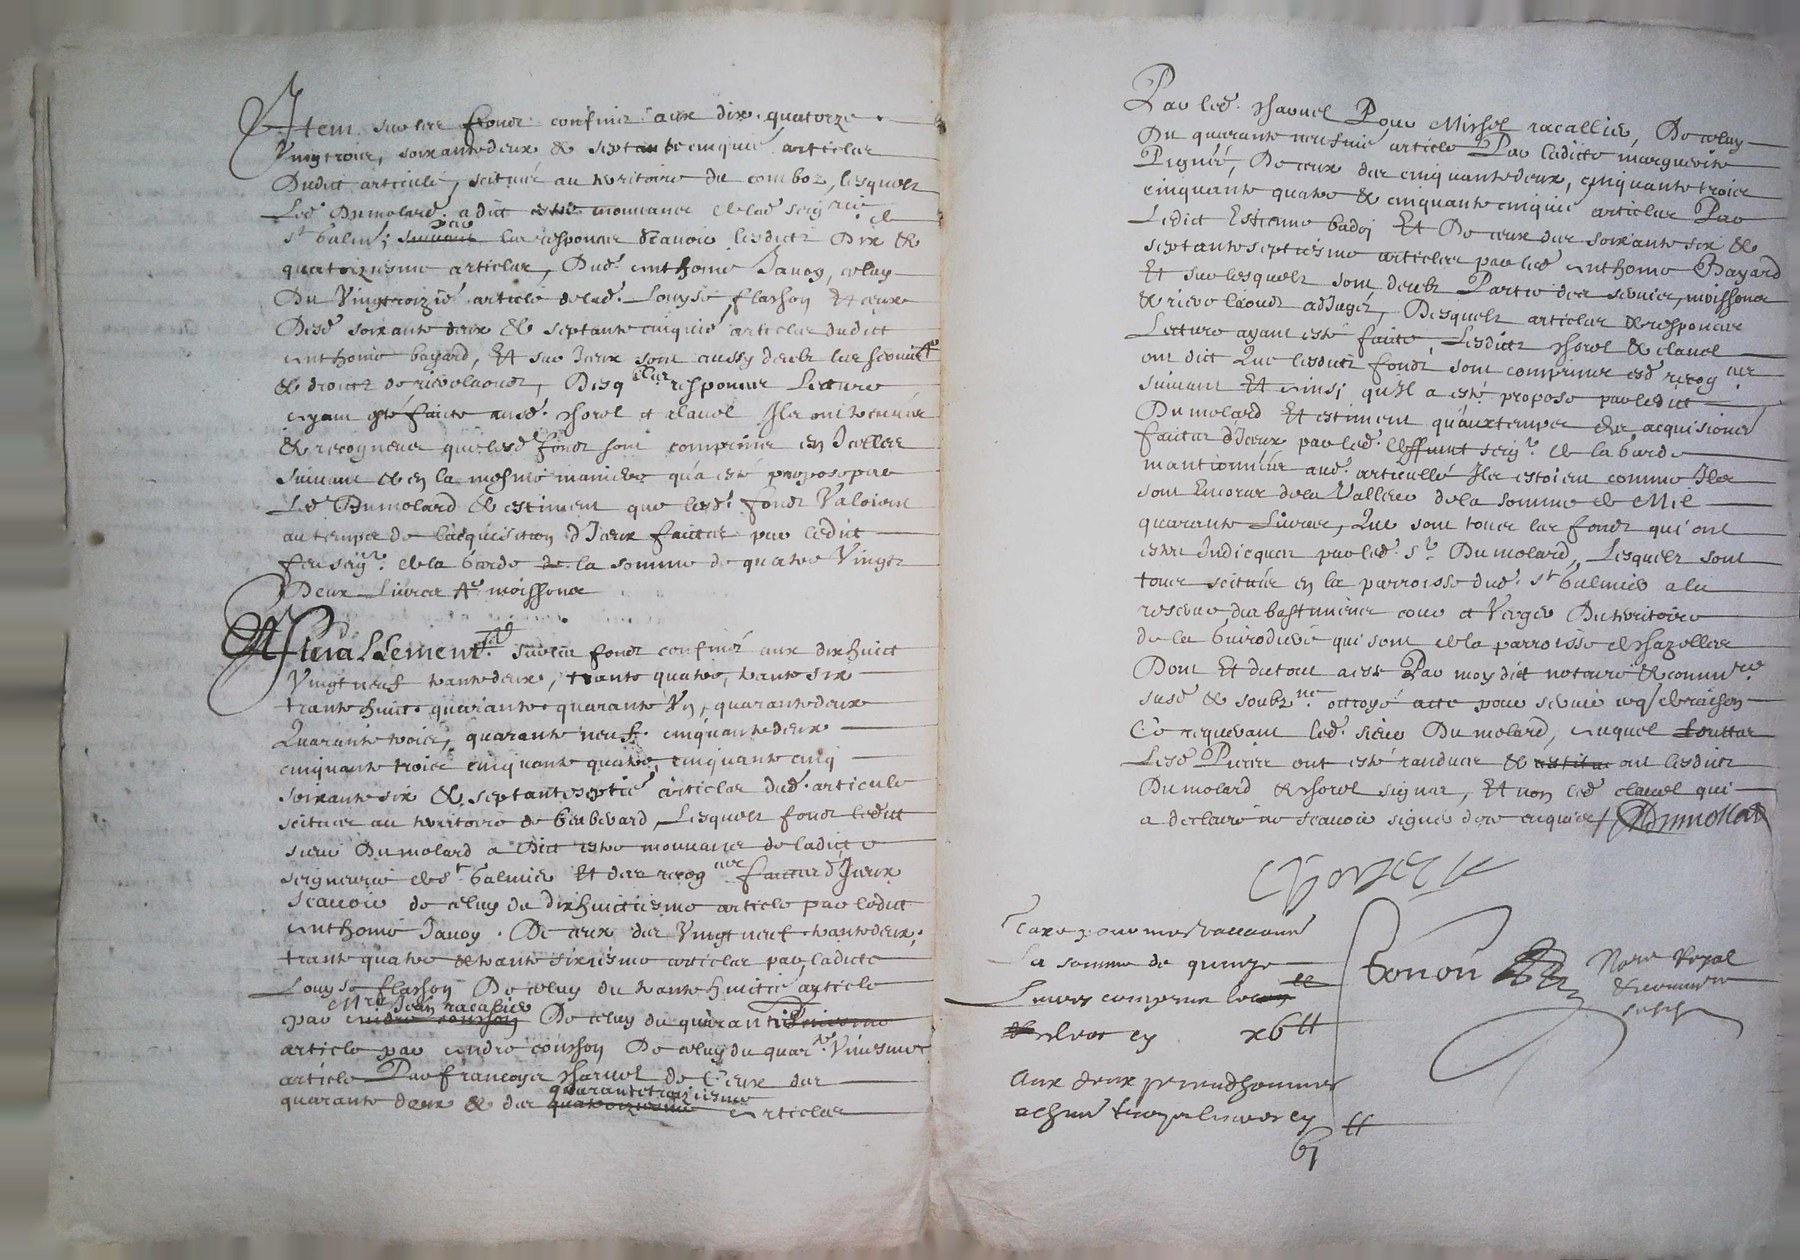 Item sur les fondz confinés aux dix, quatorze
Vingtroier, soixantedeux & septantecinquié articles
Dudict articulé, scitués au territoire du comboz, lesquelz
Led. Dumolard a dict estre mouvance de lad. seigrie de
st Galmi; suivant par les responces scavoir lesdictz Dix &
quatorziesme articles, Dud. Anthome Javoy, celuy
Du Vingtroizie article de lad. Louyse flasson Et ceux
Desd. soixante deux & septantecinquie articles dudict
Anthome bayard, Et sur Iceux sont aussy deubz les servis
& droictz de rièrelaodz, Desquelles responces Lecture
ayant esté faicte ausd. Chorel et clavel Ils ont
& recogneu que lesd. fondz sont comprins en Icelles
suivant & en la mesme maniere qu'a esté proposé par
Led. Dumolard & estiment que lesd. fondz Valoient
au temps de l'acquisition d'Iceux faictes par ledict
feu seigr. de la barde de la somme de quatre Vingtz
Deux Livres moissons
Finallement sur les fondz confinés aux dixhuict
Vingt neuf trantedeux, trante quatre, trante six
trante huict quarante quarante Un, quarantedeux
Quarante trois, quarante neuf cinquantedeux
cinquante trois cinquante quatre, cinquante cinq
soixante six & septanteseptie articles dud. articulé
scitues au territoire de Lesquelz fondz ledict
sieur Dumolard a Dict estre mouvance de ladicte
seigneurie de st Galmier Et des recognces faictes d'Iceux
Scavoir de celuy du dixhuictiesme article par ledict
Anthome Javoy. De ceux des Vingt neuf trantedeux,
trante quatre & trante sixiesme articles par ladicte
Louyse flasson De celuy du trante huictie article
par Andre cousson Mre Jean racalhie De celuy du quarantiesme
article par Andre cousson De celuy du quarte Uniesme
article Par françoys Charvel de Ceux des
quarante deux & des quatorziesme quarantetroiziesme Articles
Par led. Charvel Pour Michel racallier, De celuy
Du quarante neufvie article Par ladicte marguerite
Pignié, De ceux des cinquantedeux, cinquante trois
cinquante quatre & cinquante cinquie articles Par
Ledict Estienne badoj Et De ceux des soixante six &
septanteseptiesme articles par led. Anthome Bayard
Et sur lesquelz sont deubz Partie des servis, moissons
& rière laodz adjugés, Desquelz articles & responces
Lecture ayant esté faicte, Lesdictz Chorel & clavel
ont dict Que lesdictz fondz sont comprins esd. recognces
suivant Et Ainsi qu'Il a esté proposé par ledict
Dumolard Et estiment qu'aux temps des acquisions
faictes d'Iceux par led. deffunct seigr. de la barde
mantionnées aud. articullé Ils estoient comme Ils
sont Encores de la Valleur de la somme de Mil
quarante Livres, Que sont tous les fondz qui ont
estés Indicquez par led. Sr. Dumolard, Lesquelz sont
tous scitués en la parroisse dud. st Galmier a la
reserve des bastimens cour et Verger Du territoire
de la qui sont de la parroisse de Chazelles
Dont Et du tout acte Par moy dict notaire & commre
susd. & soubzne octroyé acte pour servir ce q de raison
Ce requerant led. sieur Dumolard, Auquel touttes
Lesd. Pieces ont esté randues & ont lesdictz
Dumolard & Chorel signés, Et non led. clavel qui
a declairé ne scavoir signer de ce enquis Dumolard
Chorel
Taxe pour mes vaccations
La somme de quinze
Livres comprins
xv tt
Aux deux preudhommes
a chun troys livres cy
vj tt
Tonon Nore Royal
& commre
susd.